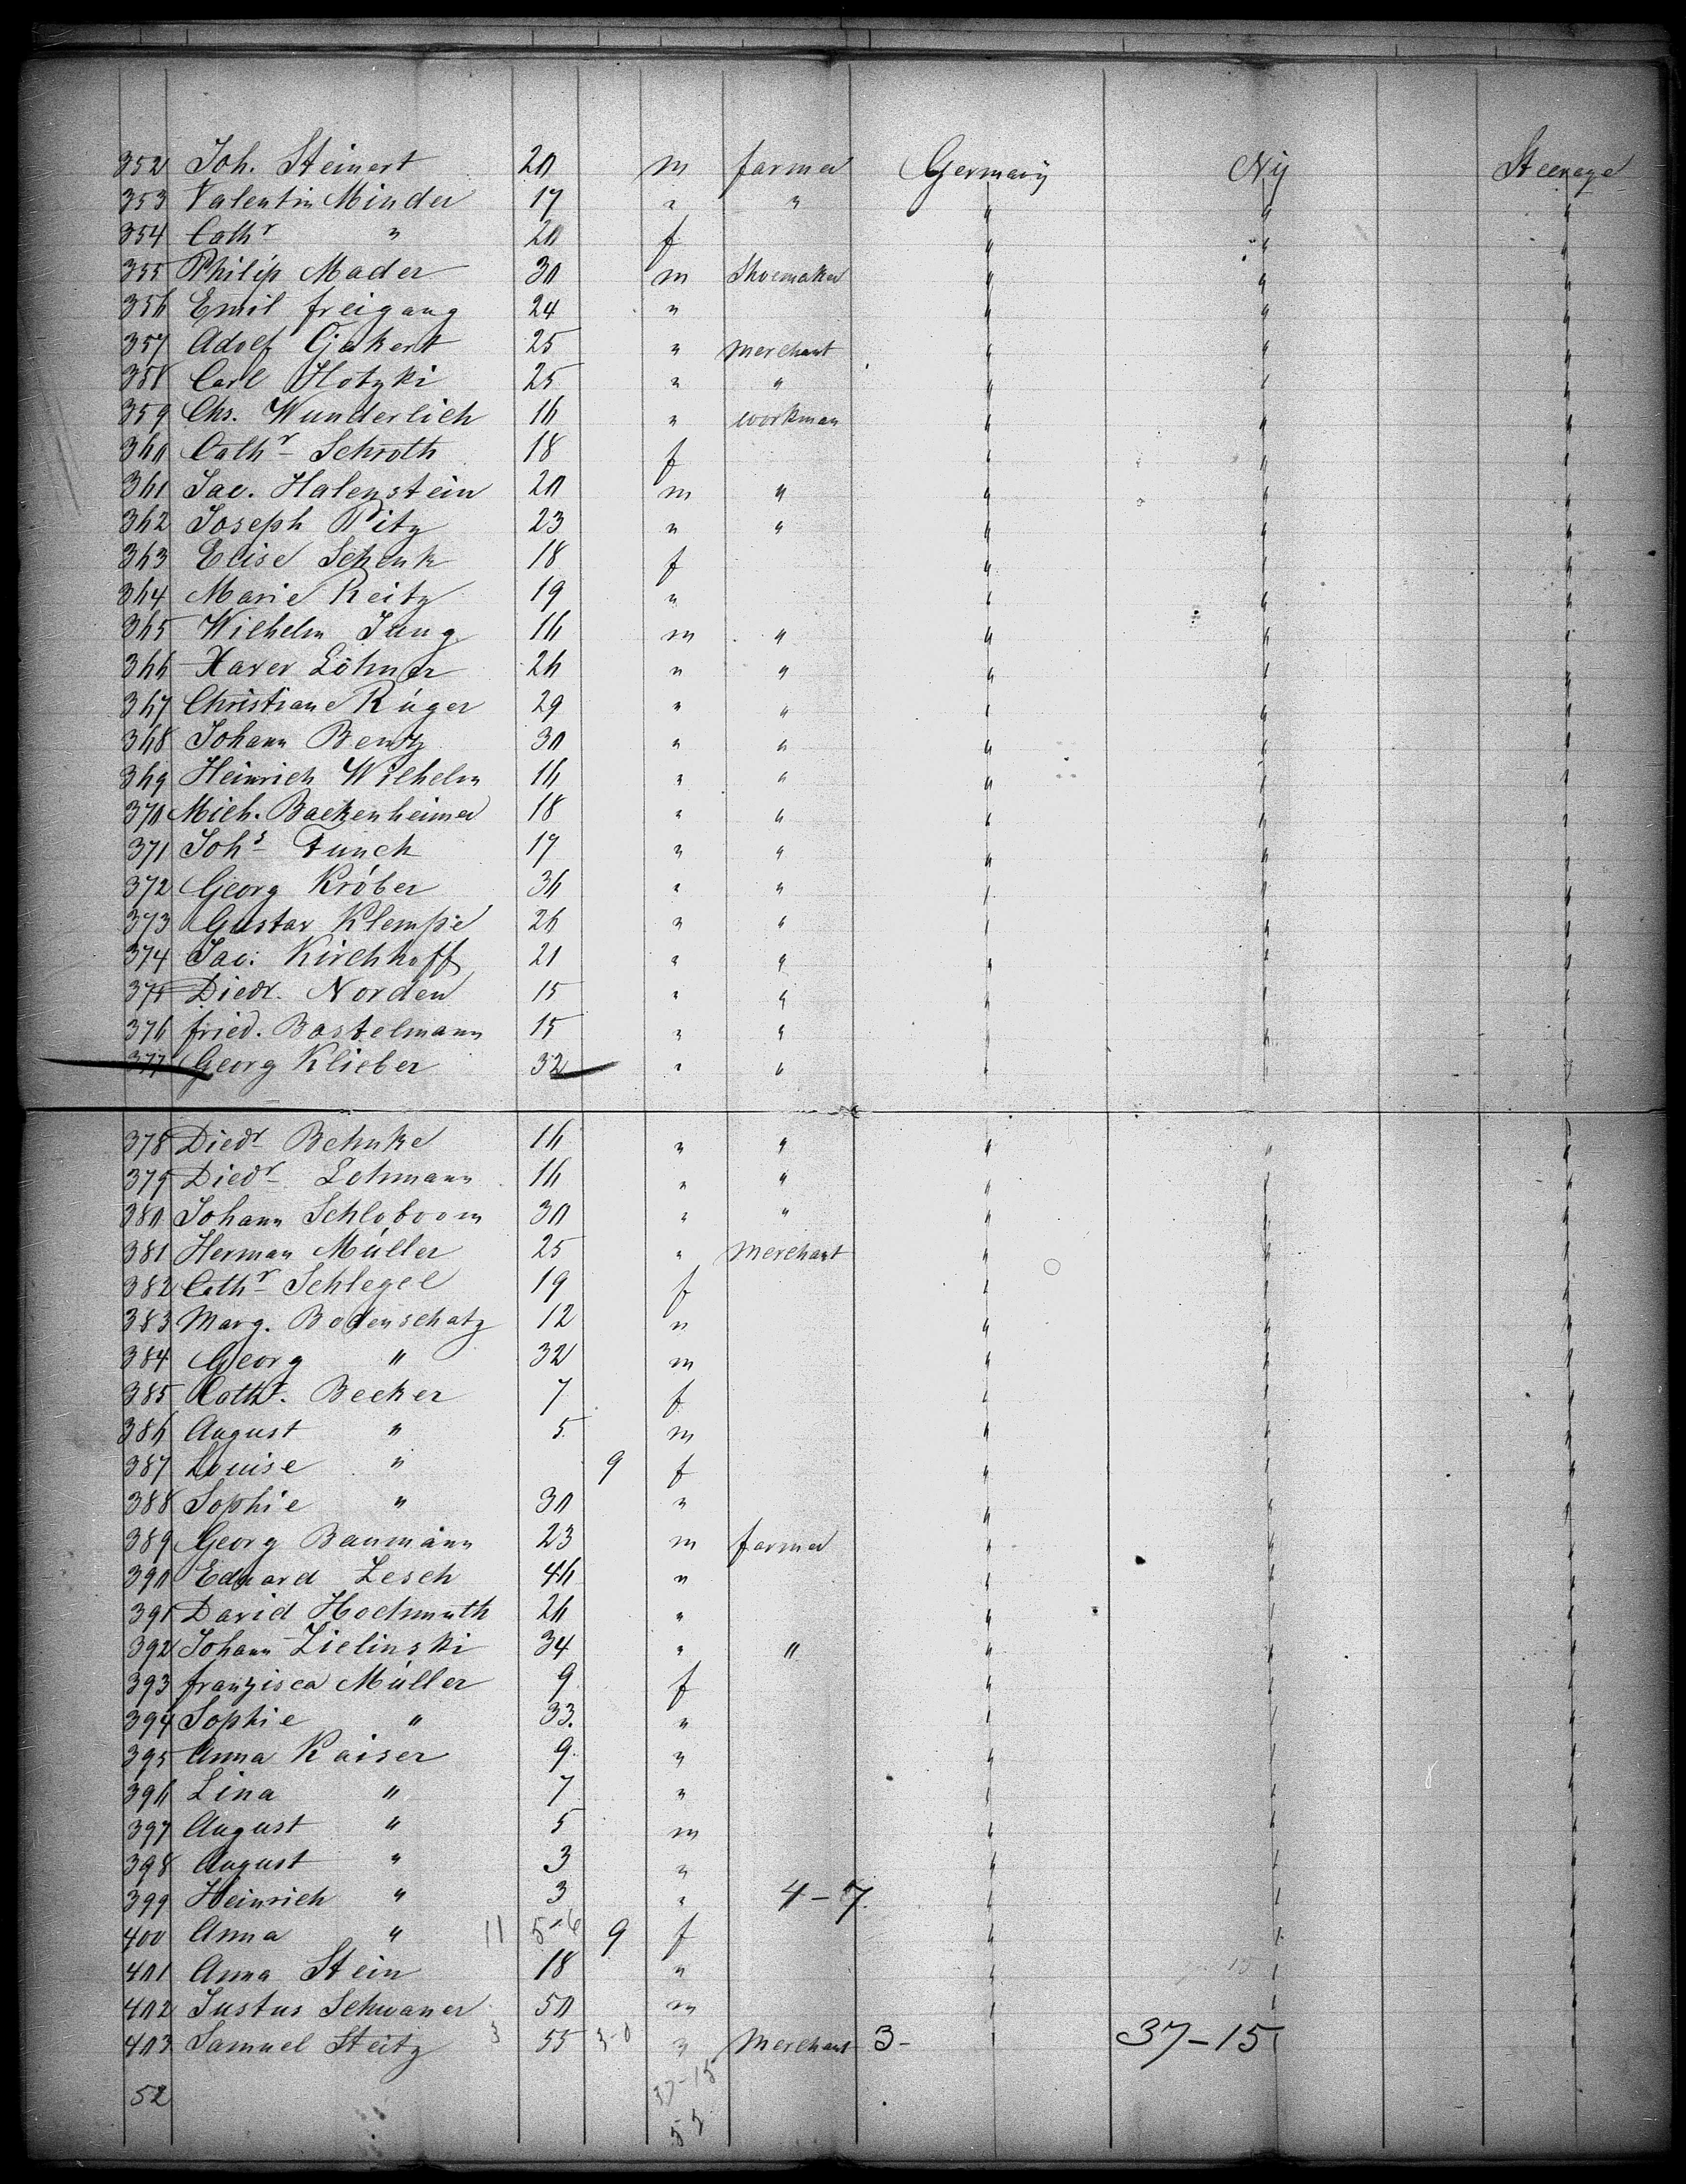 352 Joh. Steinert 20 m farmer Germany Ny Steerage
353 Valentin Minder 17 " " " " "
354 Cathr " 20 f " " "
355 Philip Mader 30 m Shoemaker " " "
356 Emil freigang 24 " " " "
357 Adolf Gakert 25 " merchant " " "
358 Carl Hotzki 25 " " " " "
359 Chs. Wunderlich 16 " workman " " "
360 Cathr Schroth 18 f " " "
361 Jac. Halenstein 20 m " " " "
362 Joseph Pitz 23 " " " " "
363 Elise Schenk 18 f " " "
364 Marie Reitz 19 " " " "
365 Wilhelm Jung 16 m " " " "
366 Xaver Löhner 26 " " " " "
367 Christiane Rüger 29 " " " " "
368 Johann Bentz 30 " " " " "
369 Heinrich Wilhelm 16 " " " " "
370 Mich. Backenheimer 18 " " " " "
371 Johs Funck 17 " " " " "
372 Georg Kröber 36 " " " " "
373 Gustav Klempe 26 " " " " "
374 Jac. Kirchhoff 21 " " " " "
375 Diedr. Norden 15 " " " " "
376 fried. Bastelmann 15 " " " " "
377 Georg Klieber 32 " " " " "
378 Diedr Behnke 16 " " " " "
379 Diedr Lohmann 16 " " " " "
380 Johann Schloboom 30 " " " " "
381 Herman Müller 25 " Merchant " " "
382 Cathr Schlegel 19 f " " "
383 Marg. Bodenschatz 12 " " " "
384 Georg " 32 m " " "
385 Cathr. Becker 7 f " " "
386 August " 5 m " " "
387 Louise " 9 f " " "
388 Sophie " 30 " " " "
389 Georg Baumann 23 m farmer " " "
390 Eduard Lesch 46 " " " "
391 David Hochmuth 26 " " " "
392 Johann Zielinski 34 " " " " "
393 franzisca Müller 9 f " " "
394 Sophie " 33. " " " "
395 Anna Kaiser 9. " " " "
396 Lina " 7 " " " "
397 August " 5 m " " "
398 August " 3 " " " "
399 Heinrich " 3 " 4-7. " " "
400 Anna " 11 5-6 9 f " " "
401 Anna Stein 18 " " " "
402 Justus Schwaner 50 m " " "
403 Samuel Steitz 3 55 3-0 " Merchant 3- " 37-15
52 37-15